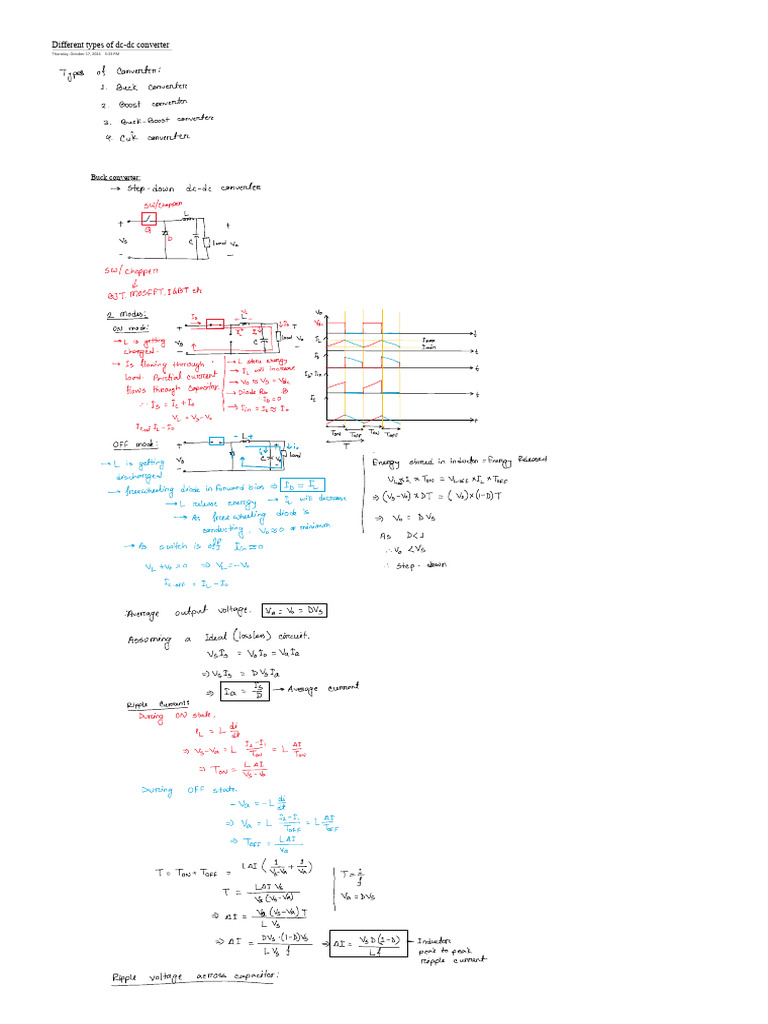 Different types of dc-dc converter
Thursday, October 17, 2024
Types of Converter:
1. Buck converter
2. Boost converter
3. Buck-Boost converter
4. Cuk converter
Buck converter:
→ Step-down dc-dc converter
SW/chopper
L
+
+
Q
D
C
load
Vs
Vo
-
-
SW/chopper
↓
BJT, MOSFET, IGBT
2 modes:
ON mode:
→ L is getting
charged.
→ Is flowing through
load. Partial current
flows through capacitor.
∴ Is = Ic + Io
VL = Vs-Vo
→ L store energy
→ IL will increase
→ Diode
ID=0
Vs
load
Vo
Imax
Imin
t
t
t
t
t
TON
TOFF
TON
TOFF
T
OFF mode:
→ L is getting
discharged
→ freewheeling diode in forward bias ⇒ ID = IL
→ L release energy → IL will decrease
→ As freewheeling diode is
conducting, VD≈0 or minimum
→ As switch is off Isw≈0
VL+Vo=0 ⇒ VL=-Vo
IC-OFF = IL-Io
Energy stored in inductor = Energy Released
⇒ (Vs-Vo)×DT = (Vo)×(1-D)T
⇒ Vo = DVs
As D<1
∴ Vo < Vs
∴ step-down
Average output voltage. Va = Vo = DVs
Assuming a Ideal (lossless) circuit.
VsIs = VoIo = VaIa
⇒ VsIs = DVsIa
⇒ Ia = Is/D → Average current
Ripple Current:
During ON state,
⇒ Vs-Va = L (I2-I1)/TON = L ΔI/TON
During OFF state.
-Va = -L di/dt
⇒ Va = L (I2-I1)/TOFF = L ΔI/TOFF
⇒ TOFF = LΔI/Va
T = TON+TOFF = LΔI (1/(Vs-Va) + 1/Va)
T = 1/f
T = LΔI Vs/(Va(Vs-Va))
Va = DVs
⇒ ΔI = Va(Vs-Va)T/(L Vs)
⇒ ΔI = DVs·(1-D)Vs/(L Vs f) ⇒ ΔI = VsD(1-D)/(Lf) → Inductor
peak to peak
ripple current
Ripple voltage across capacitor: